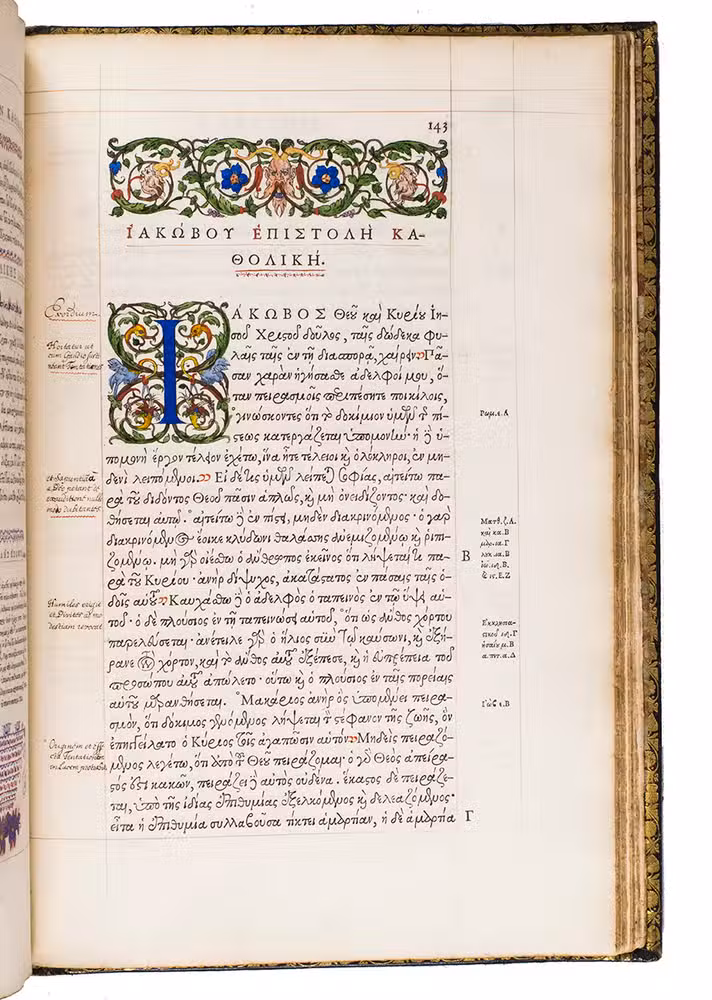 143
ΙΑΚΩΒΟΥ ΕΠΙΣΤΟΛΗ ΚΑ-
ΘΟΛΙΚΗ.
ΙΑΚΩΒΟΣ Θεοῦ καὶ Κυρίου Ἰη-
σοῦ Χριστοῦ δοῦλος, ταῖς δώδεκα φυ-
λαῖς ταῖς ἐν τῇ διασπορᾷ, χαίρειν. Πᾶ-
σαν χαρὰν ἡγήσασθε ἀδελφοί μου, ὅ-
ταν πειρασμοῖς περιπέσητε ποικίλοις,
γινώσκοντες ὅτι τὸ δοκίμιον ὑμῶν τῆς πί-
στεως κατεργάζεται ὑπομονήν· ἡ δὲ ὑ-
πομονὴ ἔργον τέλειον ἐχέτω, ἵνα ἦτε τέλειοι καὶ ὁλόκληροι, ἐν μη-
δενὶ λειπόμενοι. Εἰ δέ τις ὑμῶν λείπεται σοφίας, αἰτείτω πα-
ρὰ τοῦ διδόντος Θεοῦ πᾶσιν ἁπλῶς, καὶ μὴ ὀνειδίζοντος· καὶ δο-
θήσεται αὐτῷ. αἰτείτω δὲ ἐν πίστει, μηδὲν διακρινόμενος· ὁ γὰρ
διακρινόμενος ἔοικε κλύδωνι θαλάσσης ἀνεμιζομένῳ καὶ ῥιπι-
ζομένῳ. μὴ γὰρ οἰέσθω ὁ ἄνθρωπος ἐκεῖνος ὅτι λήψεταί τι πα-
ρὰ τοῦ Κυρίου· ἀνὴρ δίψυχος, ἀκατάστατος ἐν πάσαις ταῖς ὁ-
δοῖς αὐτοῦ. Καυχάσθω δὲ ὁ ἀδελφὸς ὁ ταπεινὸς ἐν τῷ ὕψει αὐ-
τοῦ· ὁ δὲ πλούσιος ἐν τῇ ταπεινώσει αὐτοῦ, ὅτι ὡς ἄνθος χόρτου
παρελεύσεται· ἀνέτειλε γὰρ ὁ ἥλιος σὺν τῷ καύσωνι, καὶ ἐξή-
ρανε τὸν χόρτον, καὶ τὸ ἄνθος αὐτοῦ ἐξέπεσε, καὶ ἡ εὐπρέπεια τοῦ
προσώπου αὐτοῦ ἀπώλετο· οὕτω καὶ ὁ πλούσιος ἐν ταῖς πορείαις
αὐτοῦ μαρανθήσεται. Μακάριος ἀνὴρ ὃς ὑπομένει πειρα-
σμόν, ὅτι δόκιμος γενόμενος λήψεται τὸν στέφανον τῆς ζωῆς, ὃν
ἐπηγγείλατο ὁ Κύριος τοῖς ἀγαπῶσιν αὐτόν. Μηδεὶς πειραζό-
μενος λεγέτω, ὅτι ἀπὸ τοῦ Θεοῦ πειράζομαι· ὁ γὰρ Θεὸς ἀπείρα-
στός ἐστι κακῶν, πειράζει δὲ αὐτὸς οὐδένα. ἕκαστος δὲ πειράζε-
ται, ὑπὸ τῆς ἰδίας ἐπιθυμίας ἐξελκόμενος καὶ δελεαζόμενος·
εἶτα ἡ ἐπιθυμία συλλαβοῦσα τίκτει ἁμαρτίαν, ἡ δὲ ἁμαρτία
Exordium.
Hortatur ut
cum Gaudio susti
neant Tentationes
et Sapientiā
a Deo petant
Humiles
et Divites
Originem et
Tentationum
Ῥωμ. ε. Α
Β
Ματθ. ζ. Α.
καὶ κα. Β
μαρ. ια. Γ
λυκ. ια. Β
ἰω. ιδ. Β.
& ις. Ε. Ζ
Ἐκκλησια-
στικοῦ ιδ. Γ
ἡσαΐ. μ. Β
α. πετ. α. Δ
Ἰὼβ ε. Β
Γ